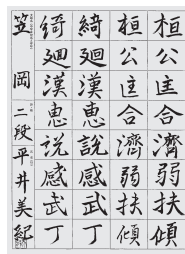 桓公匡合濟弱扶傾
桓公匡合濟弱扶傾
綺廻漢恵説感武丁
綺廻漢恵説感武丁
笠岡 二段 平井美紀